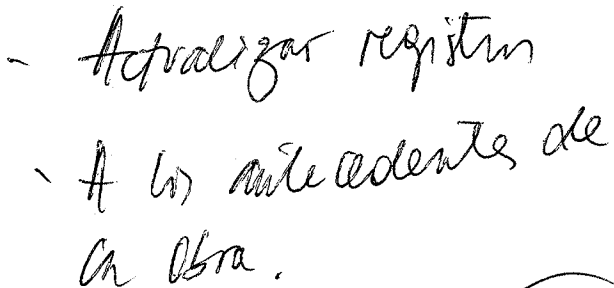 - Actualizar registros
- A los antecedentes de
la Obra.